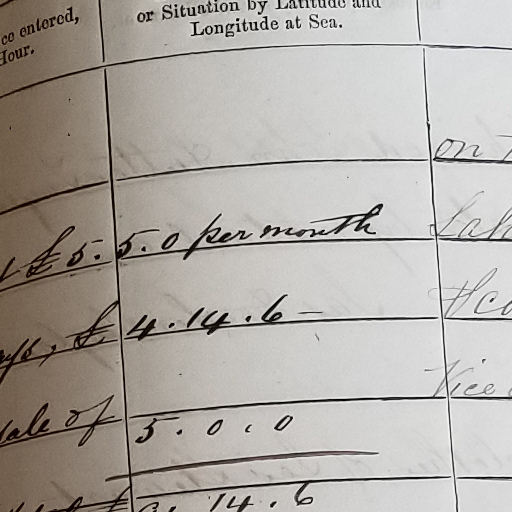 ce entered,
Hour.
or Situation by Latitude and
Longitude at Sea.
on
£5.5.0 per month
£4.14.6 -
Vice
Sale of 5.0.0
14.6